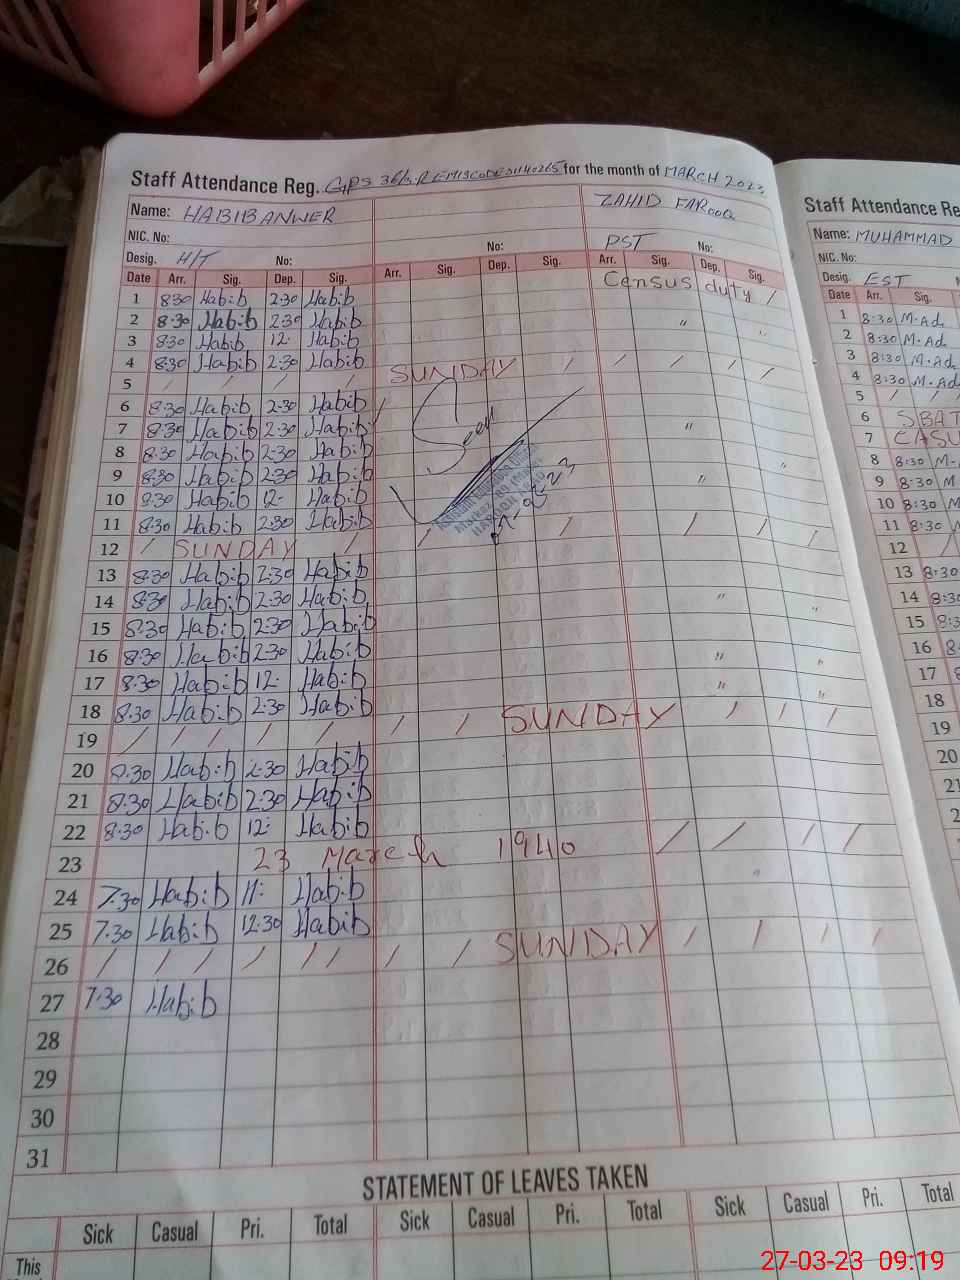 Staff Attendance Reg. GPS 36/3.R EMISCODE 31140265 for the month of MARCH 2023
Name: HABIB ANWER ZAHID FAROOQ
NIC. No: No:
Desig. H/T No: PST No:
Date Arr. Sig. Dep. Sig. Arr. Sig. Dep. Sig. Arr. Sig. Dep. Sig.
1 8:30 Habib 2:30 Habib Census duty /
2 8:30 Habib 2:30 Habib " "
3 8:30 Habib 12: Habib
4 8:30 Habib 2:30 Habib
5 / / / / SUNDAY / / / / / /
6 8:30 Habib 2:30 Habib
7 8:30 Habib 2:30 Habib "
Seen
8 8:30 Habib 2:30 Habib
9 8:30 Habib 2:30 Habib " "
10 8:30 Habib 12- Habib
11 8:30 Habib 2:30 Habib
12 / SUNDAY / / / / / / /
13 8:30 Habib 2:30 Habib
14 8:30 Habib 2:30 Habib " "
15 8:30 Habib 2:30 Habib
16 8:30 Habib 2:30 Habib " "
17 8:30 Habib 12: Habib " "
18 8:30 Habib 2:30 Habib
19 / / / / / / / SUNDAY / / /
20 8:30 Habib 2:30 Habib
21 8:30 Habib 2:30 Habib
22 8:30 Habib 12: Habib
23 23 March 1940 / / / /
24 7:30 Habib 11: Habib "
25 7:30 Habib 12:30 Habib
26 / / / / / / / / SUNDAY / / / /
27 7:30 Habib
28
29
30
31
STATEMENT OF LEAVES TAKEN
Sick Casual Pri. Total Sick Casual Pri. Total Sick Casual Pri. Total
This
Staff Attendance Re
Name: MUHAMMAD
NIC. No:
Desig. EST
Date Arr. Sig.
1 8:30 M.Ad
2 8:30 M.Ad
3 8:30 M-Ad
4 8:30 M-Ad
5 / /
6 SBAT
7 CASU
8 8:30 M-
9 8:30 M
10 8:30 M
11 8:30 M
12 /
13 8:30
14 8:30
15 8:3
16 8-
17 8
18
19
20
21
2
27-03-23 09:19